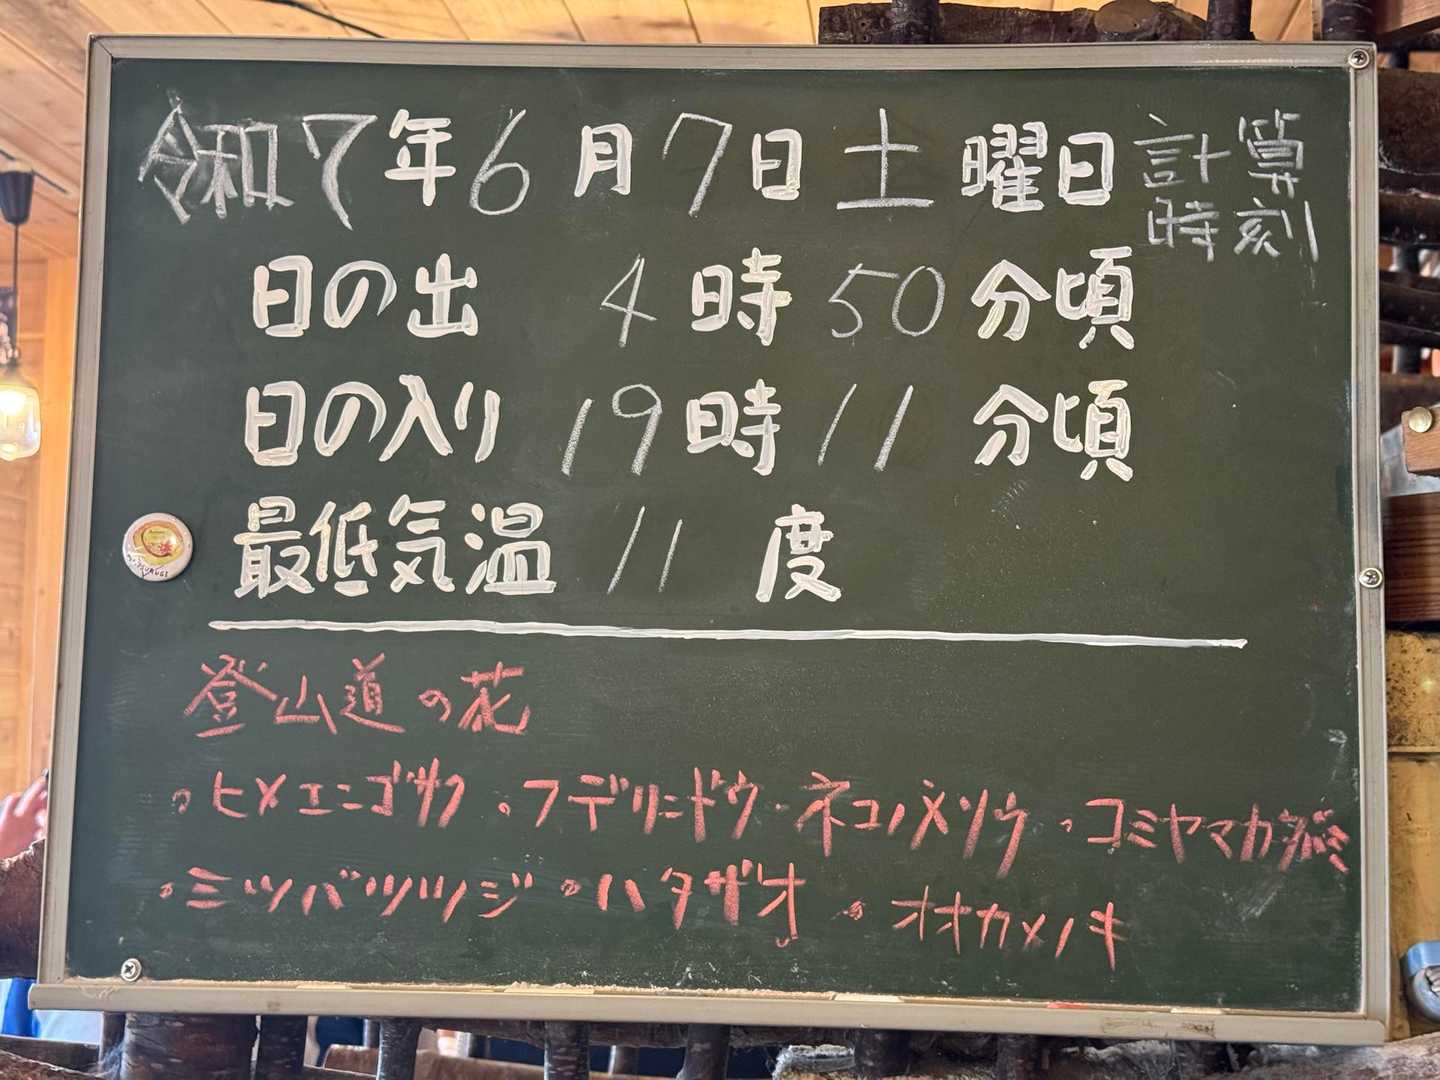 令和7年6月7日土曜日 計算時刻
日の出 4時50分頃
日の入り 19時11分頃
最低気温 11度
登山道の花
・ヒメエンゴサク ・フデリンドウ・ネコノメソウ ・コミヤマカタバミ
・ミツバツツジ ・ハタザオ ・オオカメノキ